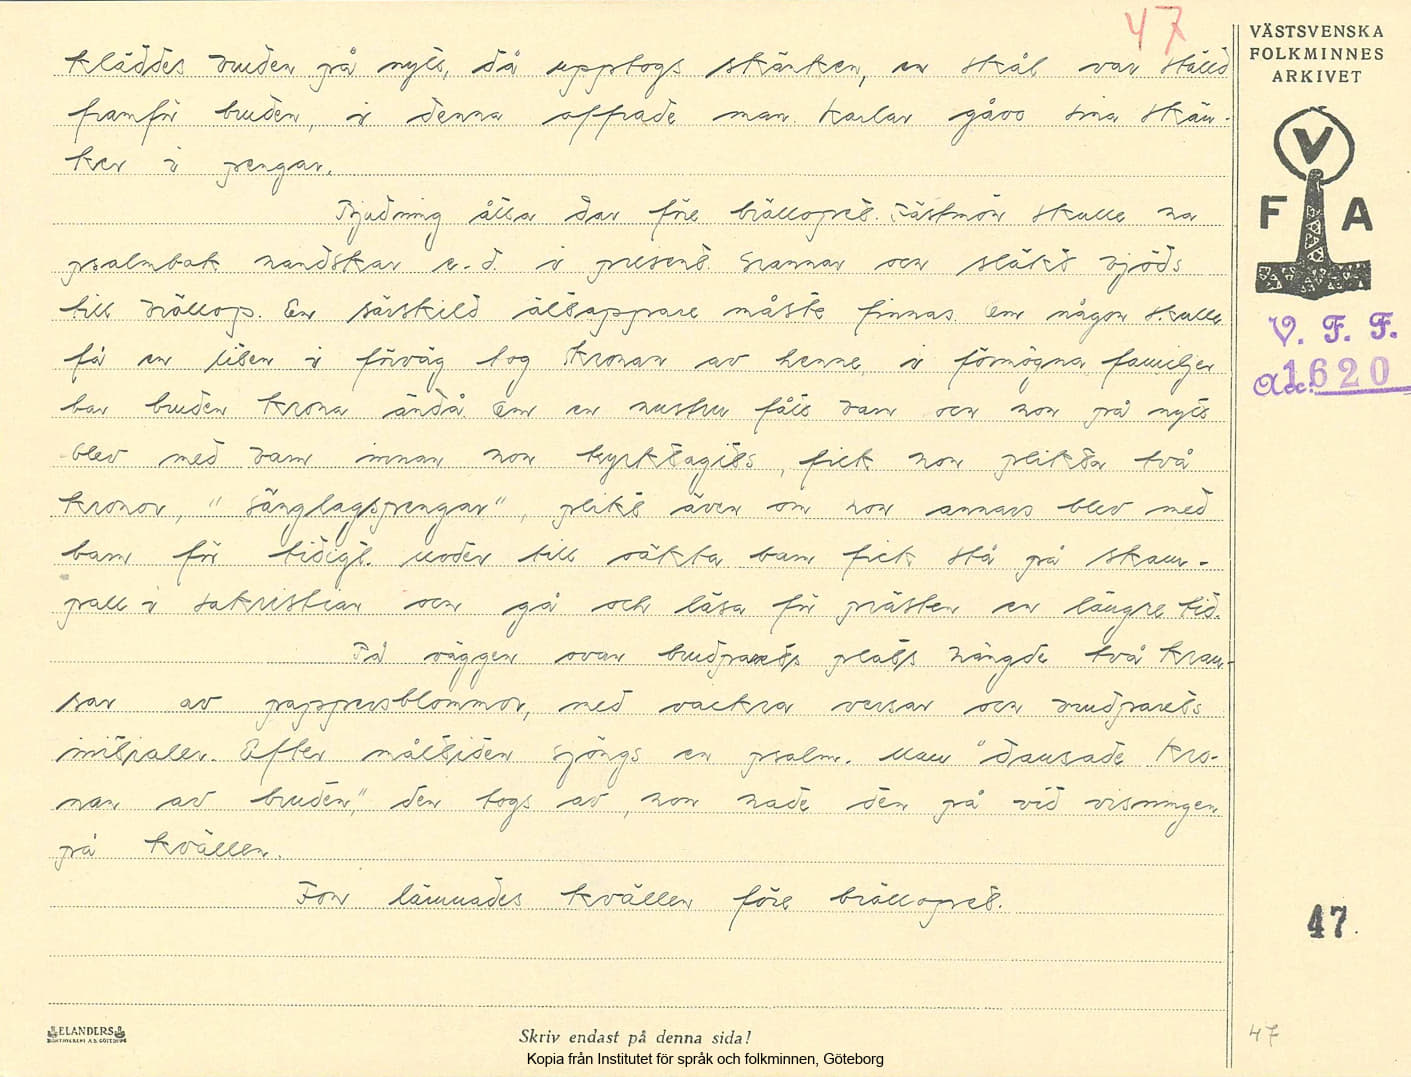 47
kläddes bruden på nytt, då upptogs skänken, en skål var ställd
framför bruden, i denna offrade man. Karlar gåvo sina skän-
ker i pengar.
Bjudning åtta dar före bröllopet. Fästmön skulle ha
psalmbok handskar e.d. i present. Grannar och släkt bjöds
till bröllop. En särskild öltappare måste finnas. Om någon skulle
få en liten i förväg tog kronan av henne, i förmögna familjer
bar bruden krona ändå. Om en hustru fått barn och hon på nytt
blev med barn innan hon kyrktagits, fick hon plikta två
kronor, "sänglagspengar", plikt även om hon annars blev med
barn för tidigt. Moder till oäkta barn fick stå på skam-
pall i sakristian och gå och läsa för prästen en längre tid.
På väggen ovan brudparets plats hängde två kran-
sar av pappersblommor, med vackra versar och brudparets
initialer. Efter måltiden sjöngs en psalm. Man "dansade kro-
nan av bruden," den togs av, hon hade den på vid visningen
på kvällen.
Förr lämnades kvällen före bröllopet.
VÄSTSVENSKA
FOLKMINNES
ARKIVET
V
F A
V. F. F.
Acc. 1620
47.
47
ELANDERS
Skriv endast på denna sida!
Kopia från Institutet för språk och folkminnen, Göteborg